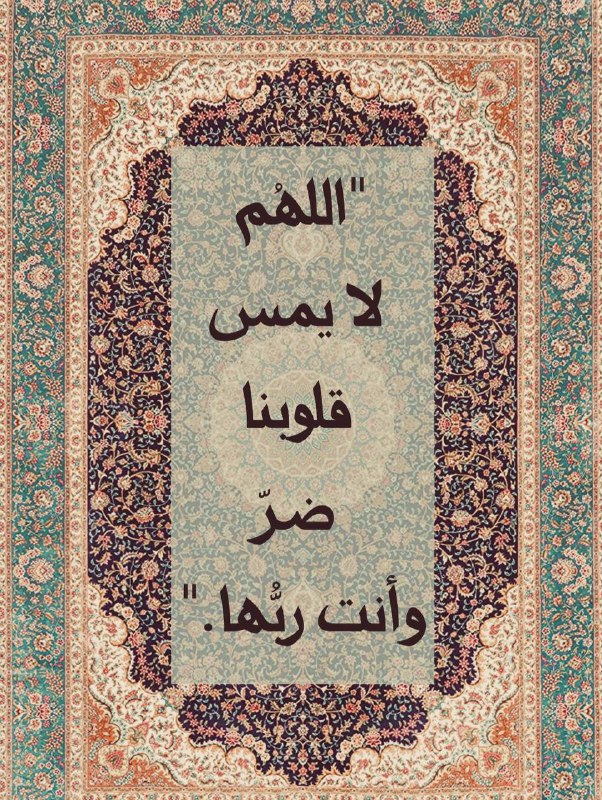 "اللهُم
لا يمس
قلوبنا
ضرّ
وأنت ربُّها."